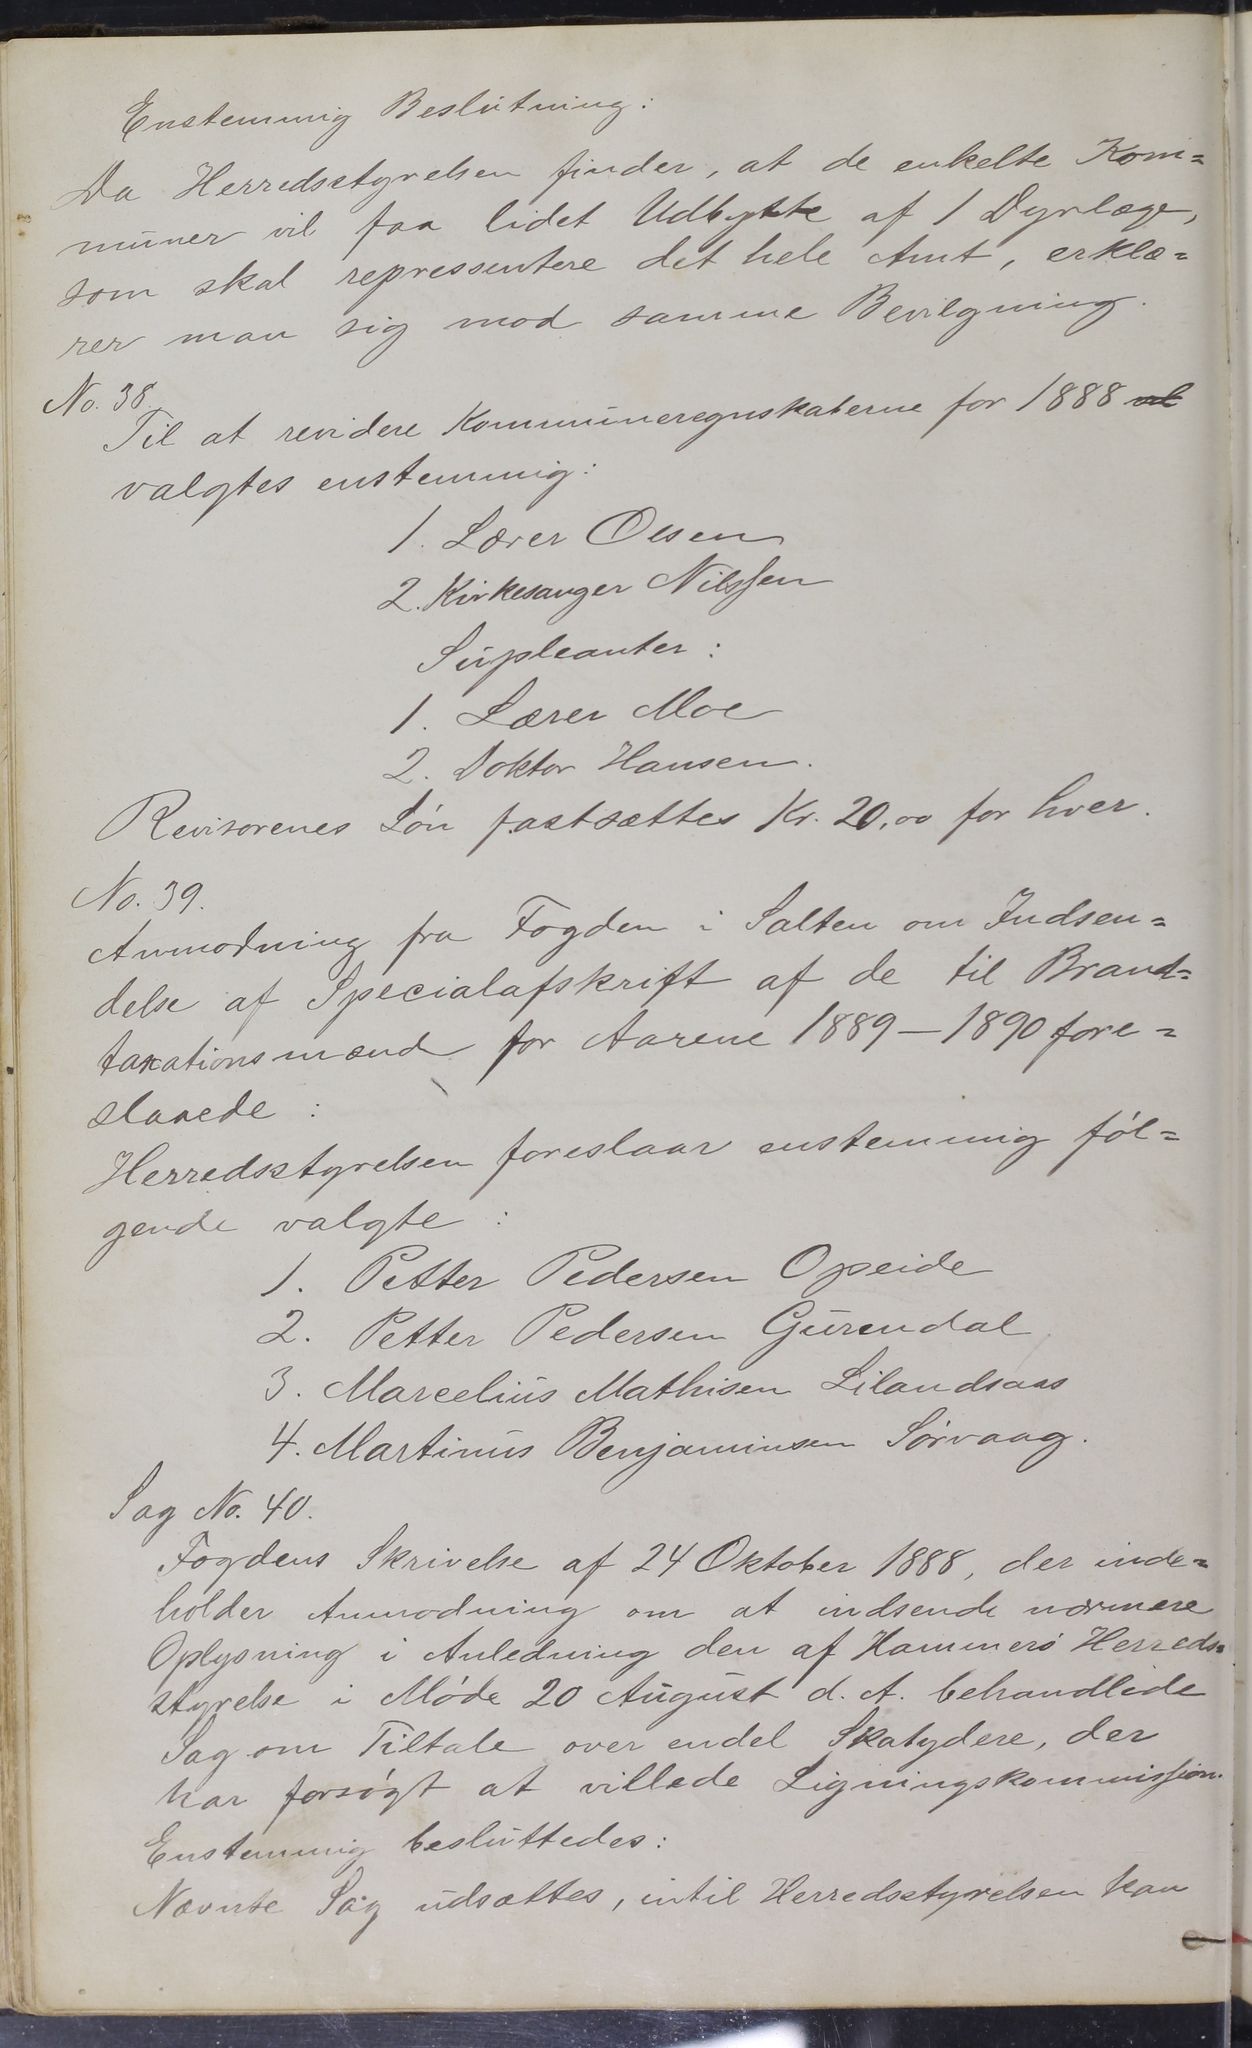 Enstemmig Beslutning:
Da Herredsstyrelsen finder, at de enkelte Kom=
muner vil faa lidet Udbytte af 1 Dyrlæge,
som skal repressentere det hele Amt, erklæ=
rer man sig mod samme Bevilgning.
No. 38.
Til at revidere Kommuneregnskaberne for 1888 val
valgtes enstemmig:
1. Lærer Olsen
2. Kirkesanger Nilssen
Supleanter:
1. Lærer Moe
2. Doktor Hansen.
Revisorenes Løn fastsættes Kr. 20,00 for hver.
No. 39.
Anmodning fra Fogden i Salten om Indsen=
delse af Specialafskrift af de til Brand=
taxationsmænd for Aarene 1889–1890 fore=
slaaede:
Herredsstyrelsen foreslaar enstemmig føl=
gende valgte:
1. Petter Pedersen Opeide
2. Petter Pedersen Gurendal
3. Marcelius Mathisen Lilandsaas
4. Martinus Benjaminsen Sørvaag.
Sag No. 40.
Fogdens Skrivelse af 24 Oktober 1888, der inde=
holder Anmodning om at indsende nærmere
Oplysning i Anledning den af Hammerø Herreds=
styrelse i Møde 20 August d. A. behandlede
Sag om Tiltale over endel Skatydere, der
har forsøgt at villede Ligningskommission.
Enstemmig besluttedes:
Nævnte Sag udsættes, intil Herredsstyrelsen kan